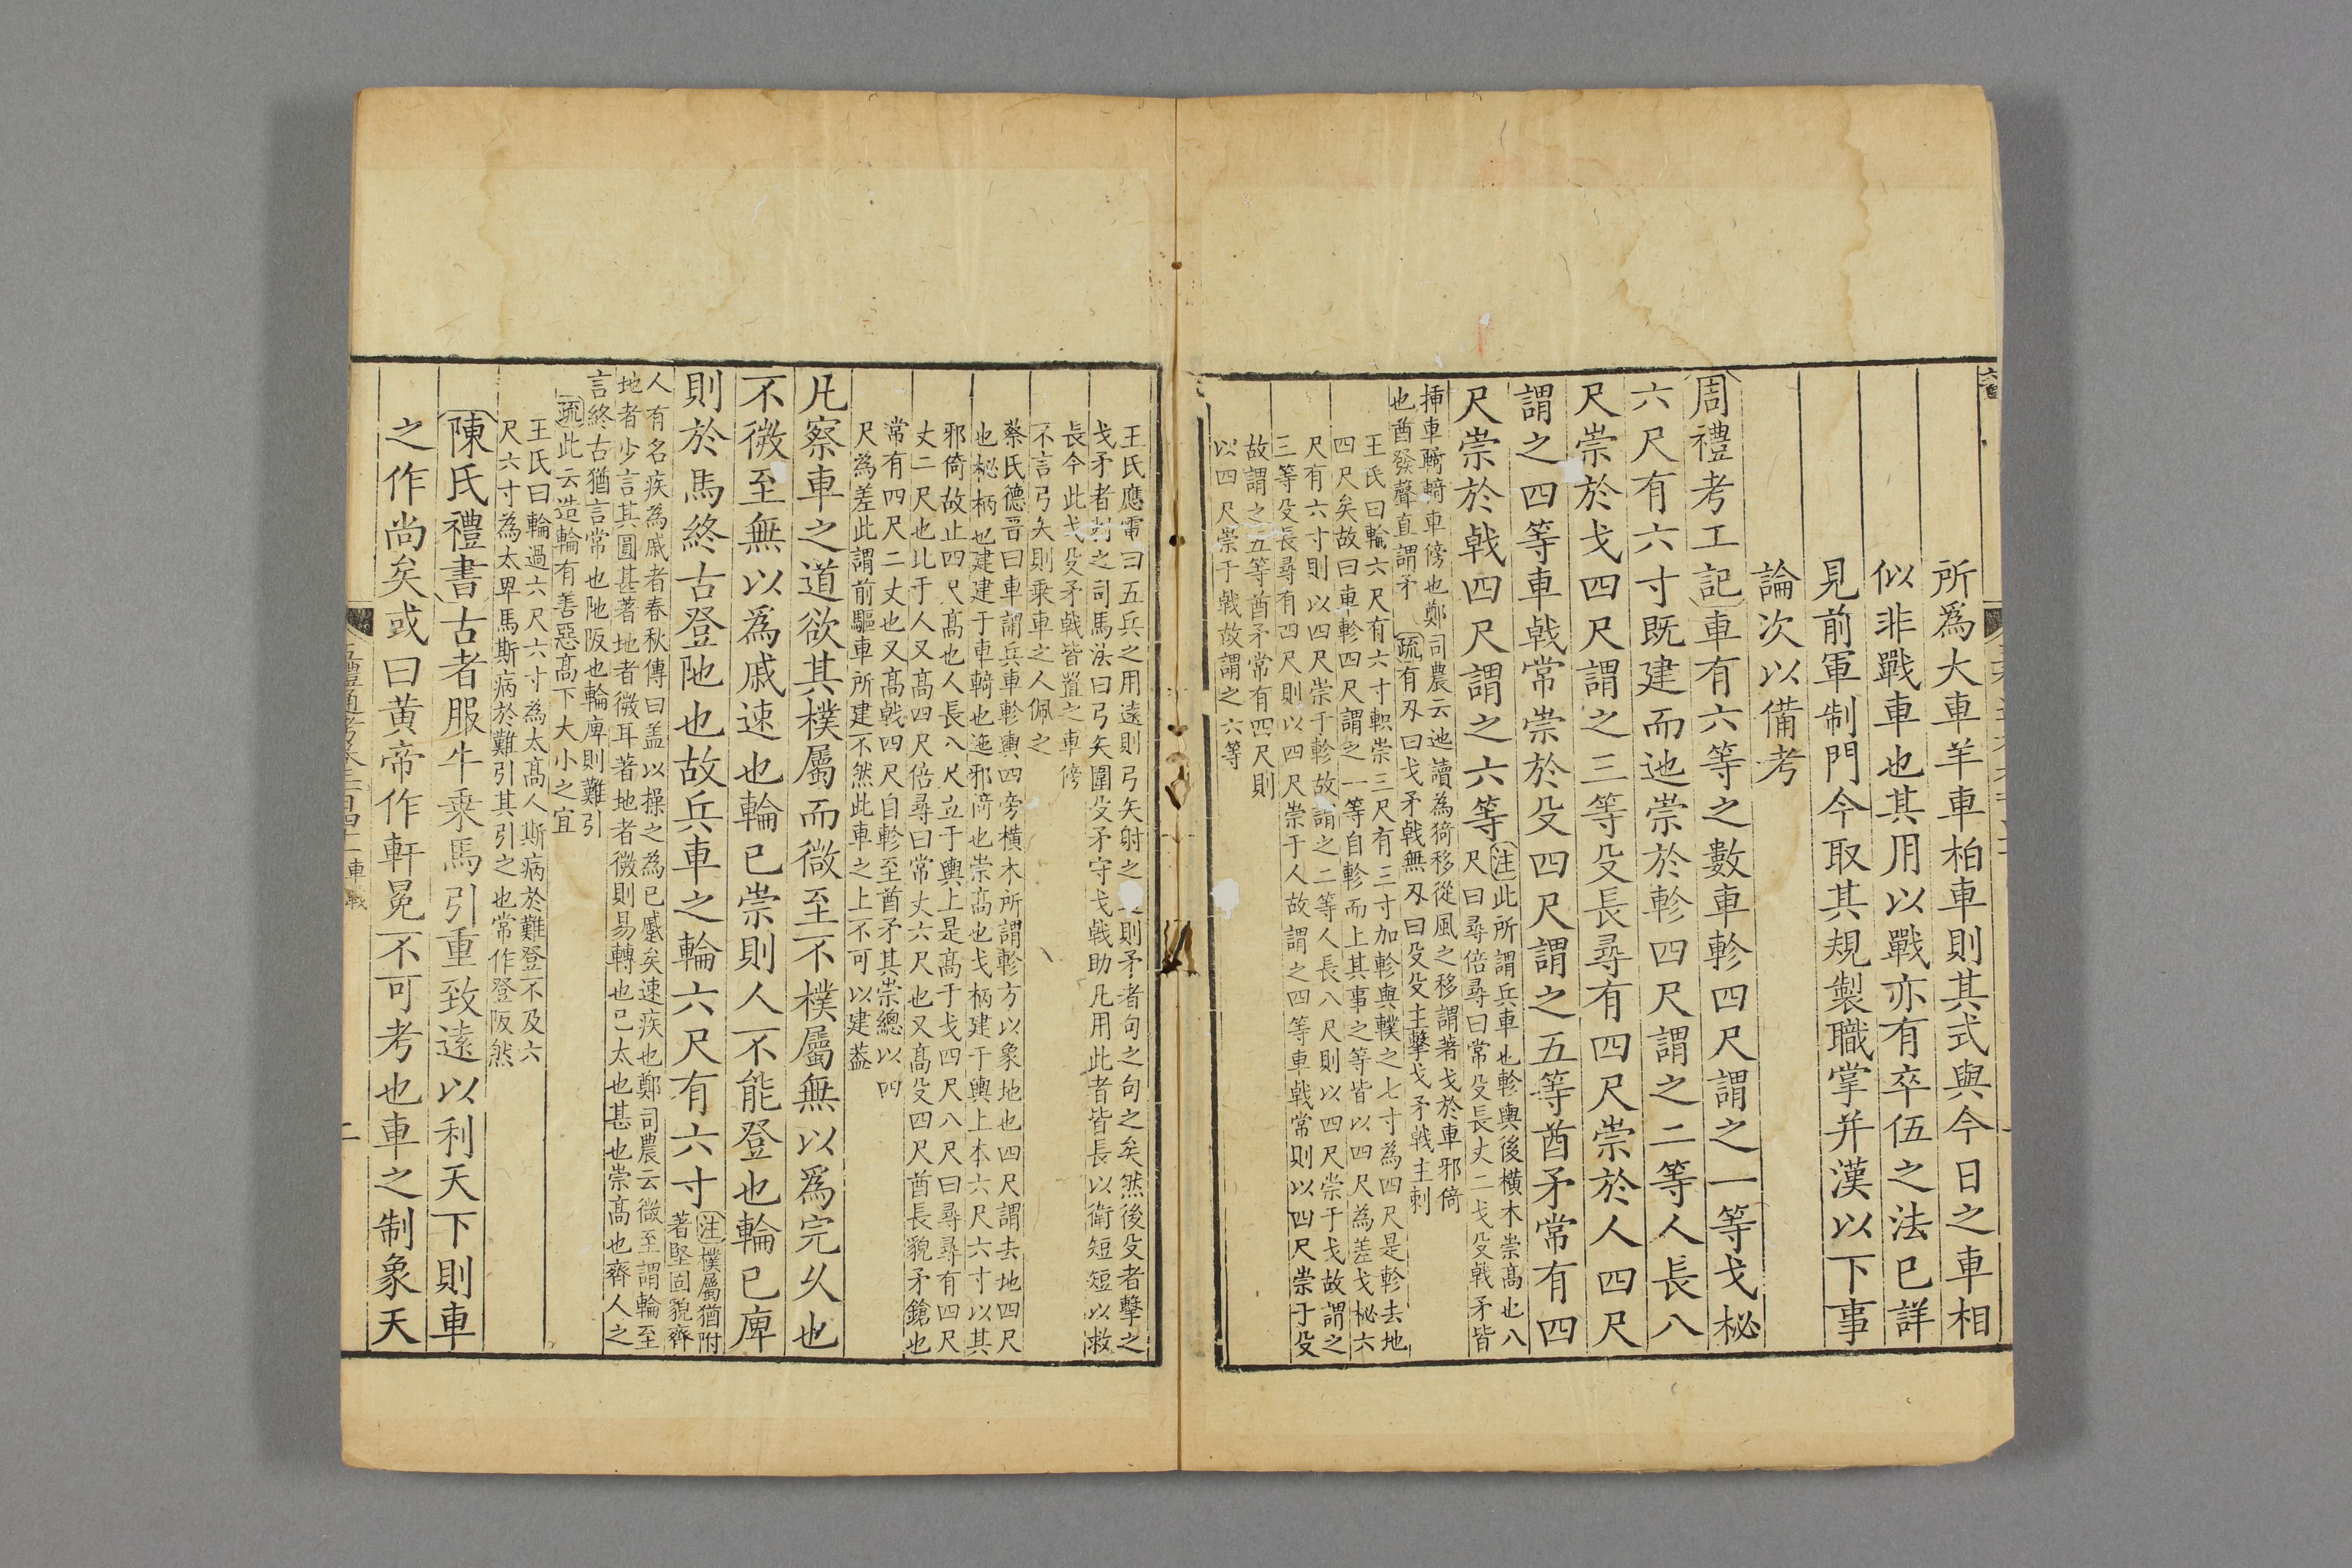 所爲大車羊車柏車則其式與今日之車相
似非戰車也其用以戰亦有卒伍之法已詳
見前軍制門今取其規製職掌并漢以下事
論次以備考
周禮考工記車有六等之數車軫四尺謂之一等戈柲
六尺有六寸既建而迤崇於軫四尺謂之二等人長八
尺崇於戈四尺謂之三等殳長尋有四尺崇於人四尺
謂之四等車戟常崇於殳四尺謂之五等酋矛常有四
尺崇於戟四尺謂之六等
注此所謂兵車也軫輿後橫木崇高也八
尺曰尋倍尋曰常殳長丈二戈殳戟矛皆
揷車輢輢車傍也鄭司農云迆讀為猗移從風之移謂著戈於車邪倚
也酋發聲直謂矛 疏有刃曰戈矛戟無刃曰殳殳主擊戈矛戟主刺
王氏曰輪六尺有六寸軹崇三尺有三寸加軫與轐之七寸為四尺是軫去地
四尺矣故曰車軫四尺謂之一等自軫而上其事之等皆以四尺為差戈柲六
尺有六寸則以四尺崇于軫故謂之二等人長八尺則以四尺崇于戈故謂之
三等殳長尋有四尺則以四尺崇于人故謂之四等車戟常則以四尺崇于殳
故謂之五等酋矛常有四尺則
以四尺崇于戟故謂之六等
王氏應電曰五兵之用遠則弓矢射之則矛者句之句之矣然後殳者擊之
戈矛者刺之司馬法曰弓矢圍殳矛守戈戟助凡用此者皆長以衛短短以救
長今此戈殳矛戟皆置之車傍
不言弓矢則乘車之人佩之
蔡氏德晋曰車謂兵車軫輿四旁橫木所謂軫方以象地也四尺謂去地四尺
也柲柄也建建于車輢也迤邪倚也崇高也戈柄建于輿上本六尺六寸以其
邪倚故止四尺高也人長八尺立于輿上是高于戈四尺八尺曰尋尋有四尺
丈二尺也比于人又高四尺倍尋曰常丈六尺也又高殳四尺酋長貌矛鎗也
常有四尺二丈也又高戟四尺自軫至酋矛其崇總以四
尺為差此謂前驅車所建不然此車之上不可以建葢
凡察車之道欲其樸屬而微至不樸屬無以爲完久也
不微至無以爲戚速也輪已崇則人不能登也輪已庳
則於馬終古登阤也故兵車之輪六尺有六寸
注樸屬猶附
著堅固貌齊
人有名疾為戚者春秋傳曰盖以操之為已蹙矣速疾也鄭司農云微至謂輪至
地者少言其圓甚著地者微耳著地者微則易轉也已太也甚也崇高也齊人之
言終古猶言常也阤阪也輪庳則難引
疏此云造輪有善惡高下大小之宜
王氏曰輪過六尺六寸為太高人斯病於難登不及六
尺六寸為太卑馬斯病於難引其引之也常作登阪然
陳氏禮書古者服牛乘馬引重致遠以利天下則車
之作尚矣或曰黃帝作軒冕不可考也車之制象天
五禮通考卷二百四十一 車戰 二